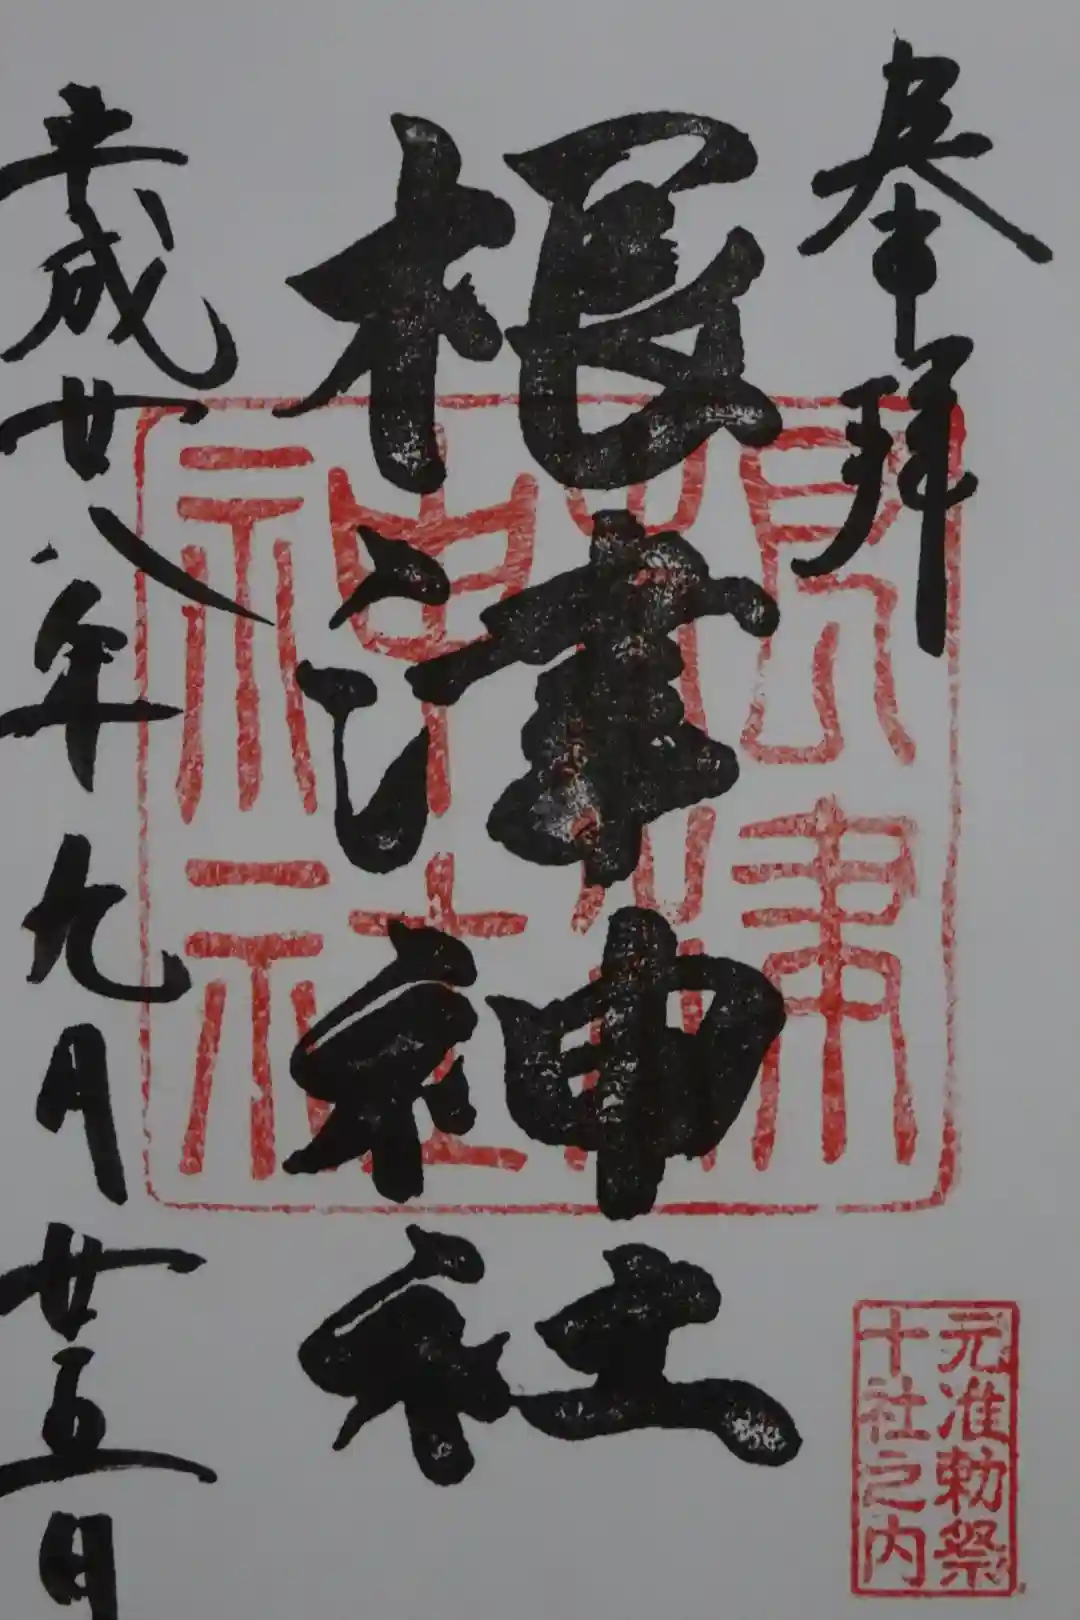 奉拝
根津神社
根津神社
元准勅祭
十社之内
平成廿八年九月廿五日